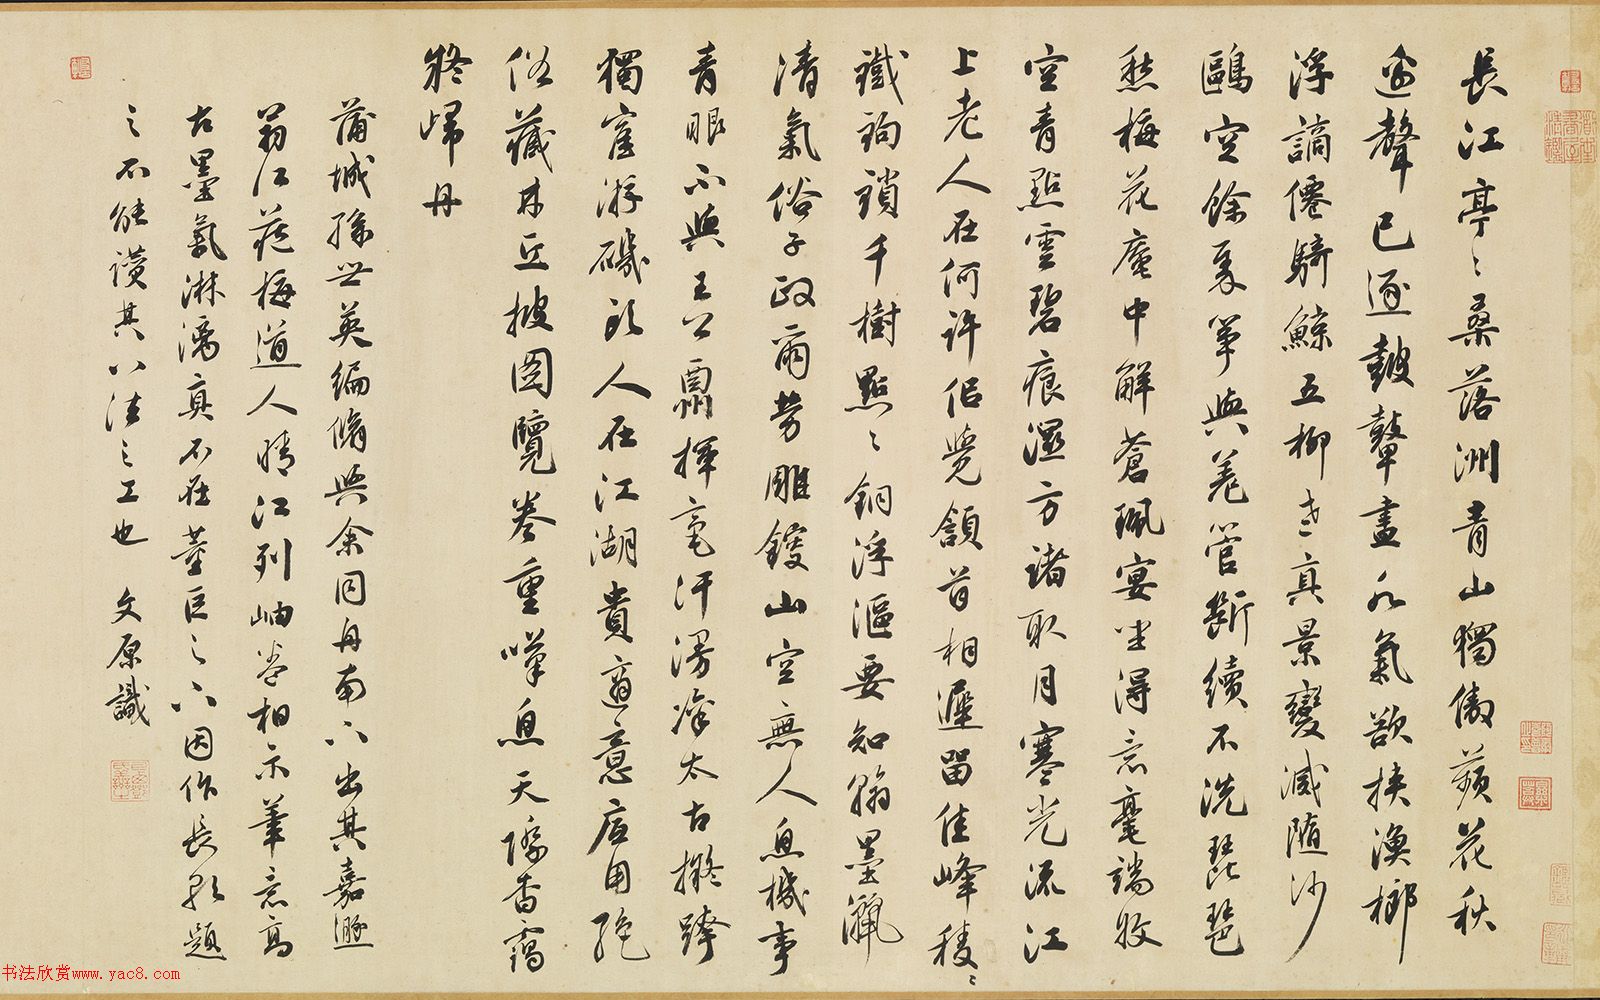 長江亭〻桑落洲青山獨傲蘋花秋
邊聲已逐鼓鼙盡水氣欲挾漁榔
浮謫僊騎鯨五柳去真景變滅隨沙
鷗空餘豪筆與羌管斷續不洗琵琶
愁梅花庵中解蒼珮宴坐得意毫端收
空青點雲碧痕濕方諸取月寒光流江
上老人在何許但覺頷首相遲留佳峰稜〻
鐵鉤鎖千樹點〻銅浮漚要知翰墨灑
清氣俗子政爾勞雕鎪山空無人息機事
青眼不與王公肅揮毫汗漫凌太古擬跨
獨寉游磯頭人在江湖貴適意店用絶
俗藏林丘披圖覽卷重嘆息天際杳靄
將歸舟
蒲城孫世英編脩與余同舟南下出其嘉遯
翁江蓙梅道人晴江列岫卷相示筆意高
古墨氣淋漓真不在董巨之下因作長歌題
之不能讚其八法之工也 文原識
书法欣赏www.yac8.com